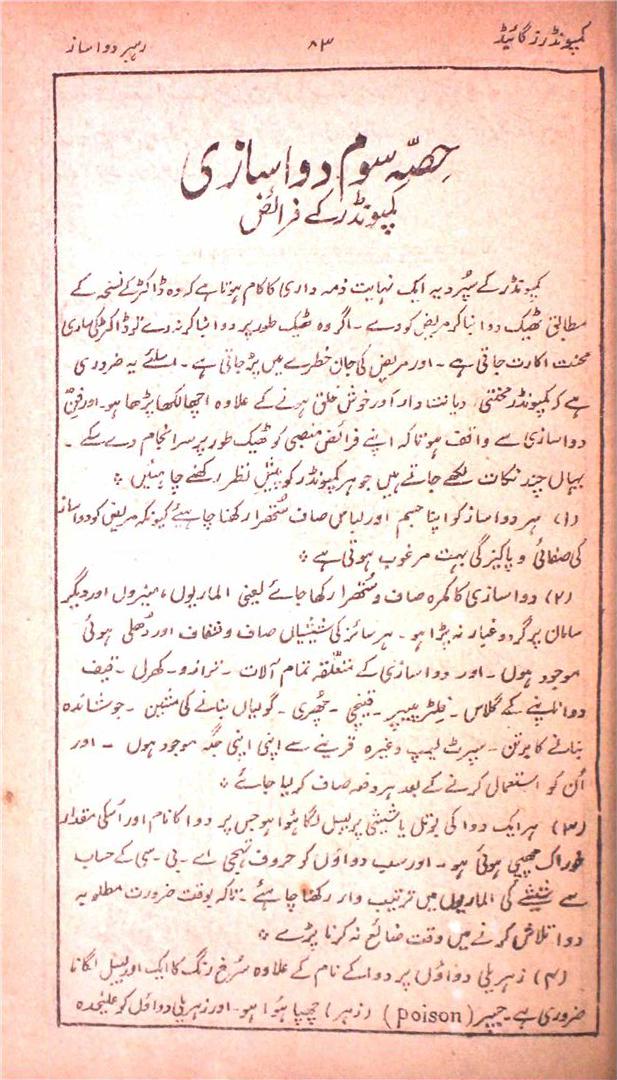 کمپونڈرز گائیڈ ۸۳ رہبر دواساز
حِصّہِ سوم دواسازی
کمپونڈر کے فرائض
کمپونڈر کے سُپرد یہ ایک نہایت ذمہ داری کا کام ہوتا ہے کہ وہ ڈاکٹر کے نسخہ کے
مطابق ٹھیک دوا بنا کر مریض کو دے ۔ اگر وہ ٹھیک طور پر دوا بنا کر نہ دے تو ڈاکٹر کی ساری
محنت اکارت جاتی ہے ۔ اور مریض کی جان خطرے میں پڑ جاتی ہے ۔ اسلئے یہ ضروری
ہے کہ کمپونڈر محنتی، دیانتدار اور خوش خلق ہونے کے علاوہ اچھا لکھا پڑھا ہو ۔ اور فنِّ
دواسازی سے واقف ہو تاکہ اپنے فرائض منصبی کو ٹھیک طور پر سرانجام دے سکے ۔
یہاں چند نکات لکھے جاتے ہیں جو ہر کمپونڈر کو پیشِ نظر رکھنے چاہئیں ؞
(۱) ہر دواساز کو اپنا جسم اور لباس صاف سُتھرا رکھنا چاہیئے کیونکہ مریض کو دواساز
کی صفائی و پاکیزگی بہت مرغوب ہوتی ہے ؞
(۲) دواسازی کا کمرہ صاف و سُتھرا رکھا جائے یعنی الماریوں، میزوں اور دیگر
سامان پر گرد و غبار نہ پڑا ہو ۔ ہر سائز کی شیشیاں صاف و شفاف اور دُھلی ہوئی
موجود ہوں ۔ اور دواسازی کے متعلّقہ تمام آلات ۔ ترازو ۔ کھرل ۔ قیف
دوا ناپنے کے گلاس ۔ فِلٹر پیپر ۔ قینچی ۔ چُھری ۔ گولیاں بنانے کی مشین ۔ جوشاندہ
بنانے کا برتن ۔ سپرٹ لیمپ وغیرہ قرینے سے اپنی اپنی جگہ موجود ہوں ۔ اور
اُن کو استعمال کرنے کے بعد ہر دفعہ صاف کر لیا جائے ؞
(۳) ہر ایک دوا کی بوتل یا شیشی پر لیبل لگا ہُوا ہو جس پر دوا کا نام اور اُسکی مقدار
خوراک چھپی ہوئی ہو ۔ اور سب دواؤں کو حروف تہجی اے ۔ بی ۔ سی کے حساب
سے شیشے کی الماریوں میں ترتیب وار رکھنا چاہیئے ۔ تاکہ بوقت ضرورت مطلوبہ
دوا تلاش کرنے میں وقت ضائع نہ کرنا پڑے ؞
(۴) زہریلی دواؤں پر دوا کے نام کے علاوہ سُرخ رنگ کا ایک اور لیبل لگانا
ضروری ہے ۔ جسپر (poison) (زہر) چھپا ہُوا ہو ۔ اور زہریلی دواؤں کو علیٰحدہ